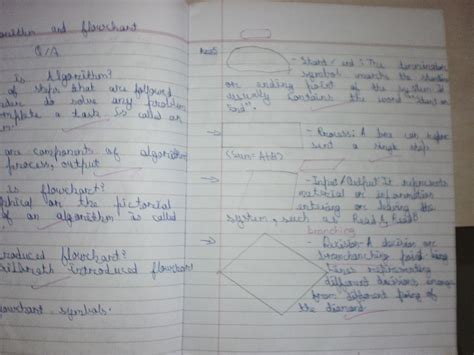 and flowchart
Q/A
is Algorithm?
of steps that are followed
to solve any problem
a task is called an
are components of algorithm
process, output
is flowchart?
on the pictorial
of an algorithm is called
introduced flowchart?
Gilbreth introduced flowchart
flowchart symbols.
- Start / end : The termination
symbol marks the starting
or ending point of the system it
usually contains the word "start or
End".
- Process: A box can repre
sent a single step
(Sum=A+B)
- Input/Output It represents
material or information
entering or leaving the
system, such as Read A, Read B
branching
- Decision- A decision or
branching point
lines
different decisions emerge
from different of
the diamond